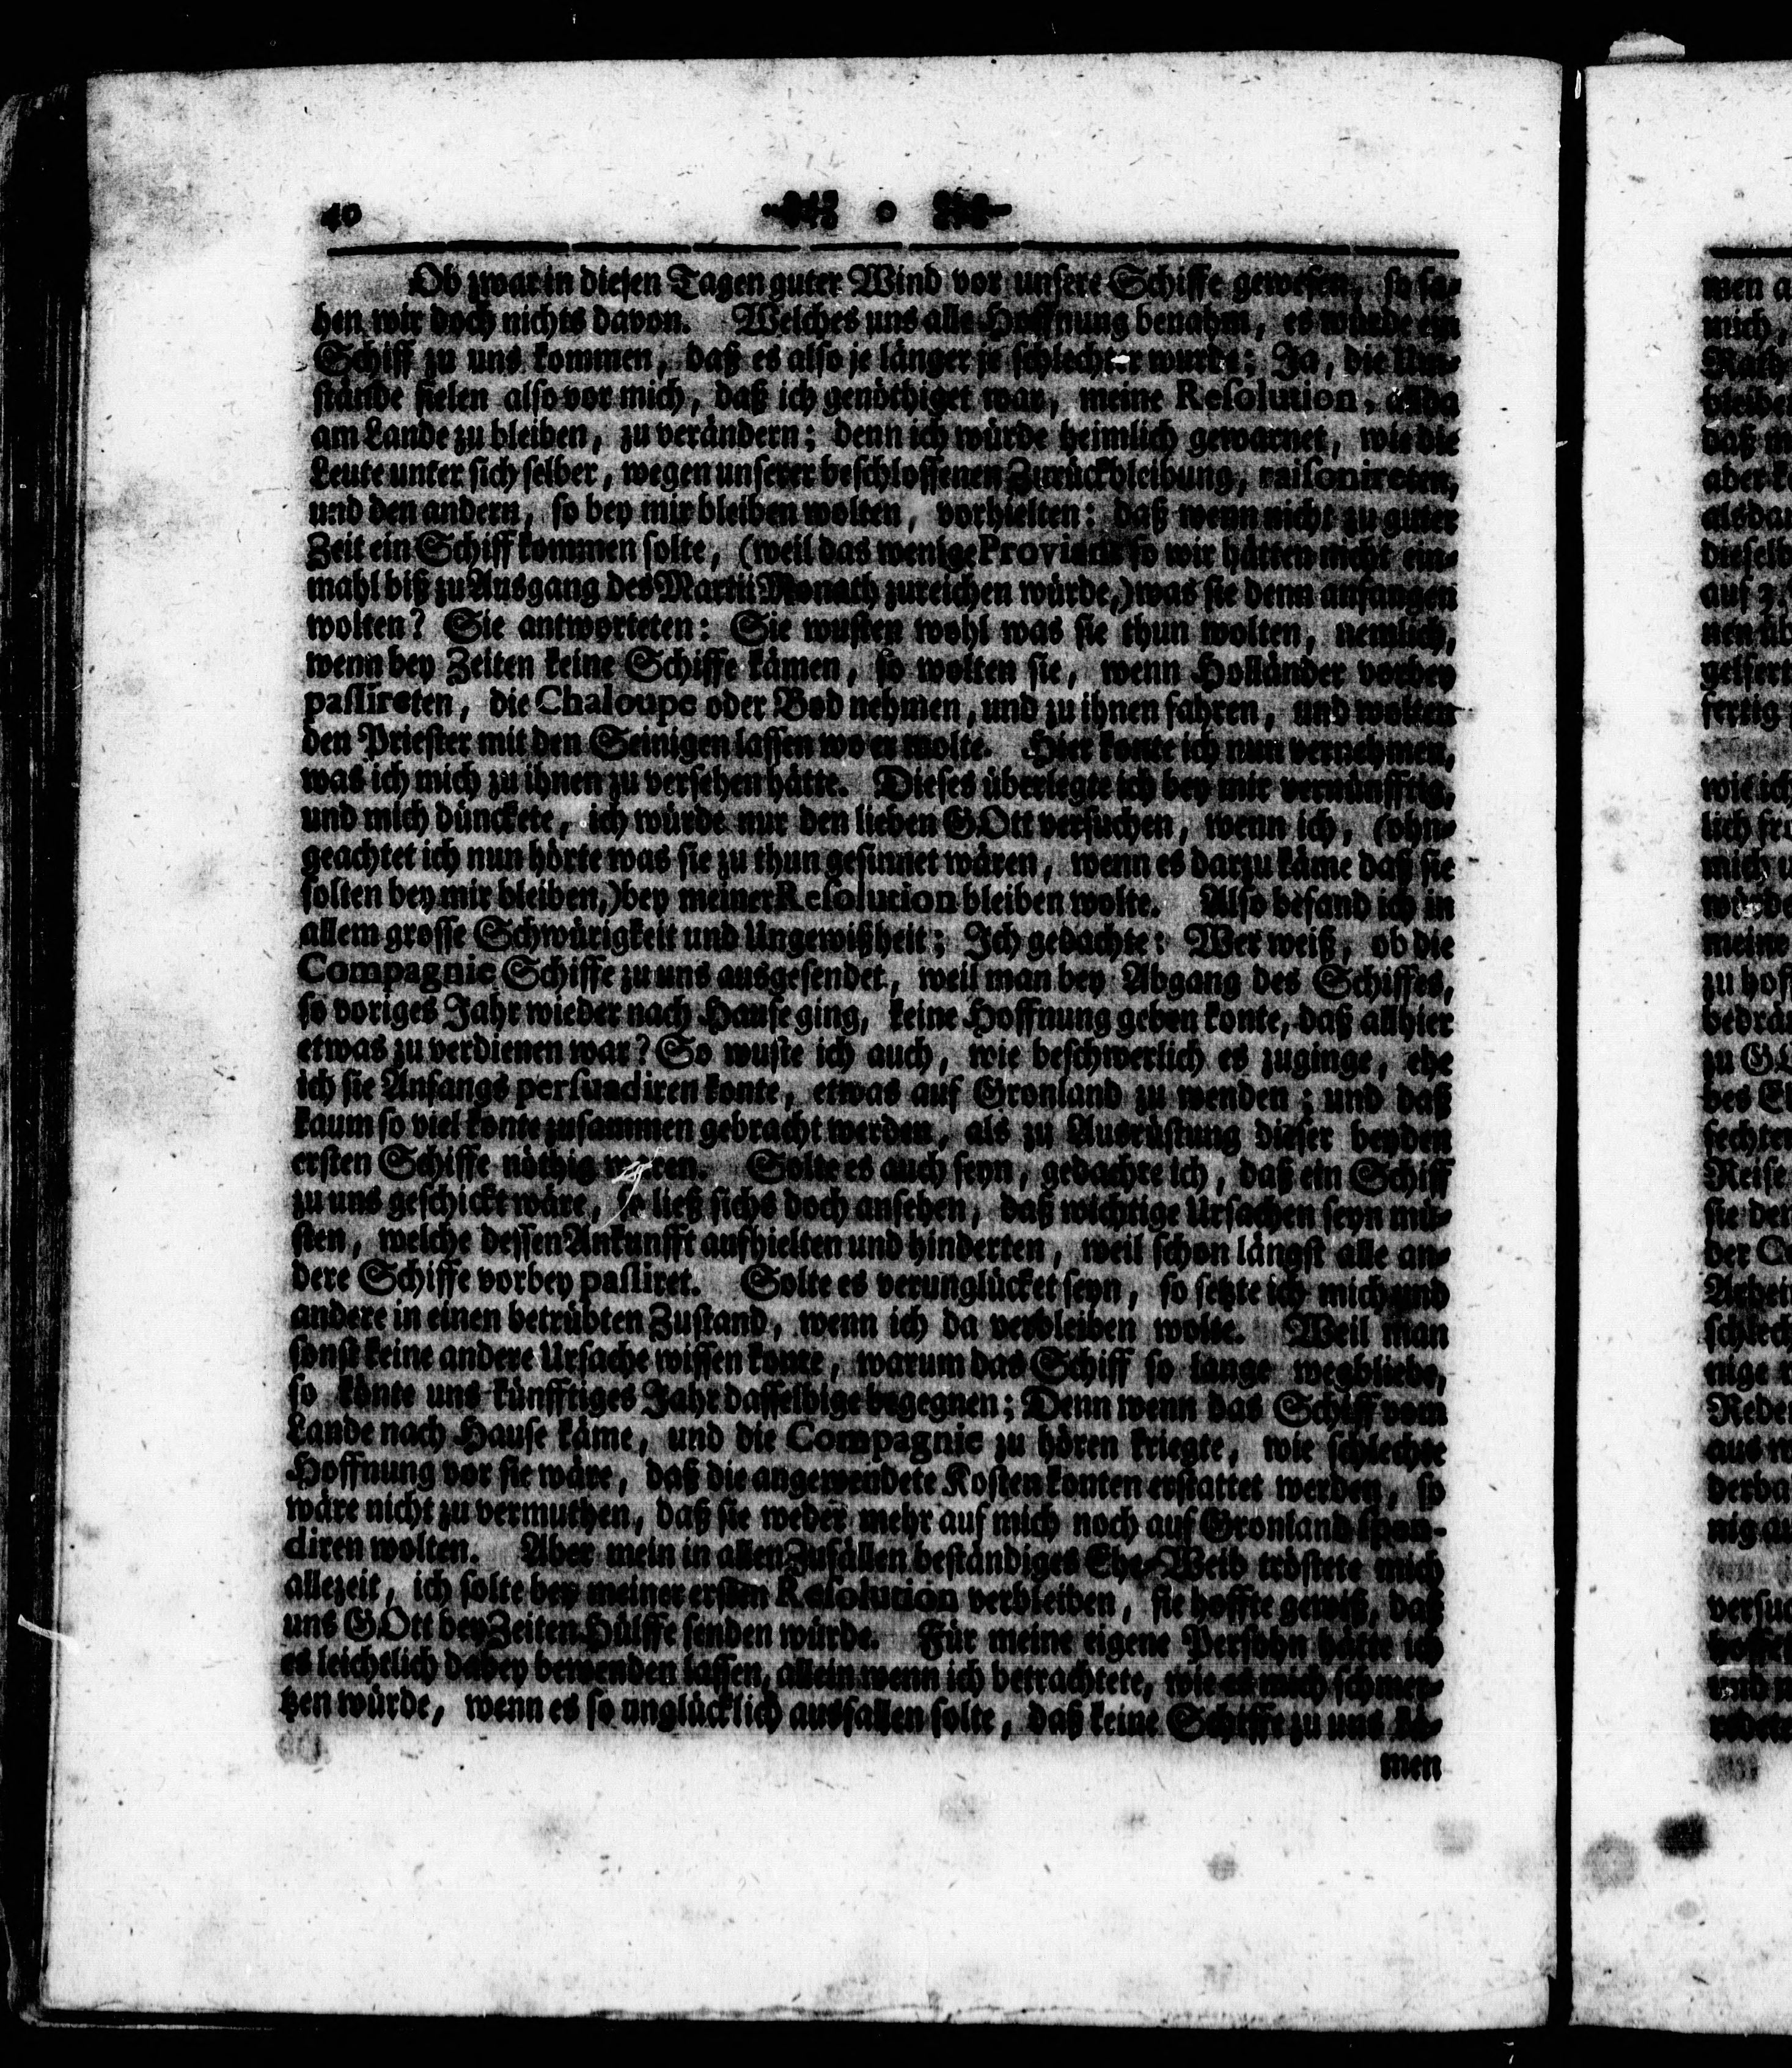 40
Ob zwar in diesen Tagen guter Wind vor unsere Schiffe gewesen, so sa-
hen wir doch nichts davon. Welches uns alle Hoffnung benahm, es würde ein
Schiff zu uns kommen, daß es also je länger je schlechter wurde; Ja, die Um-
stände fielen also vor mich, daß ich genöthiget war, meine Resolution, allda
am Lande zu bleiben, zu verändern; denn ich würde heimlich gewarnet, wie die
Leute unter sich selber, wegen unserer beschlossenen Zurückbleibung, raisonireten,
und den andern, so bey mir bleiben wolten, vorhielten: daß wenn nicht zu guter
Zeit ein Schiff kommen solte, (weil das wenige Proviant so wir hätten nicht ein-
mahl biß zu Ausgang des Martii Monath zureichen würde,) was sie denn anfangen
wolten? Sie antworteten: Sie wusten wohl was sie thun wolten, nemlich,
wenn bey Zeiten keine Schiffe kämen, so wolten sie, wenn Holländer vorbey
passireten, die Chaloupe oder Bod nehmen, und zu ihnen fahren, und wolten
den Priester mit den Seinigen lassen wo er wolte. Hier konte ich nun vernehmen,
was ich mich zu ihnen zu versehen hätte. Dieses überlegte ich bey mir vernünfftig,
und mich dünckete, ich würde nur den lieben GOtt versuchen, wenn ich, (ohn-
geachtet ich nun hörte was sie zu thun gesinnet wären, wenn es darzu käme daß sie
solten bey mir bleiben,) bey meiner Resolution bleiben wolte. Also befand ich in
allem grosse Schwürigkeit und Ungewißheit; Ich gedachte: Wer weiß, ob die
Compagnie Schiffe zu uns ausgesendet, weil man bey Abgang des Schiffes,
so voriges Jahr wieder nach Hause ging, keine Hoffnung geben konte, daß allhier
etwas zu verdienen war? So wuste ich auch, wie beschwerlich es zuginge, ehe
ich sie Anfangs persuadiren konte, etwas auf Gronland zu wenden; und daß
kaum so viel konte zusammen gebracht werden, als zu Ausrüstung dieser beyden
ersten Schiffe nöthig waren. Solte es auch seyn, gedachte ich, daß ein Schiff
zu uns geschickt wäre, so ließ sichs doch ansehen, daß wichtige Ursachen seyn mü-
sten, welche dessen Ankunfft aufhielten und hinderten, weil schon längst alle an-
dere Schiffe vorbey passiret. Solte es verunglücket seyn, so setzte ich mich und
andere in einen betrübten Zustand, wenn ich da verbleiben wolte. Weil man
sonst keine andere Ursache wissen konte, warum das Schiff so lange wegbliebe,
so könte uns künfftiges Jahr dasselbige begegnen; Denn wenn das Schiff vom
Lande nach Hause käme, und die Compagnie zu hören kriegte, wie schlechte
Hoffnung vor sie wäre, daß die angewendete Kosten konten erstattet werden, so
wäre nicht zu vermuthen, daß sie weder mehr auf mich noch auf Gronland spen-
diren wolten. Aber mein in allen Zufällen beständiges Ehe-Weib tröstete mich
allezeit, ich solte bey meiner ersten Resolution verbleiben, sie hoffte gewiß, daß
uns GOtt bey Zeiten Hülffe senden würde. Für meine eigene Persohn hätte ich
es leichtlich dabey bewenden lassen, allein wenn ich betrachtete, wie es mich schmer-
tzen würde, wenn es so unglücklich ausfallen solte, daß keine Schiffe zu uns kä-
men